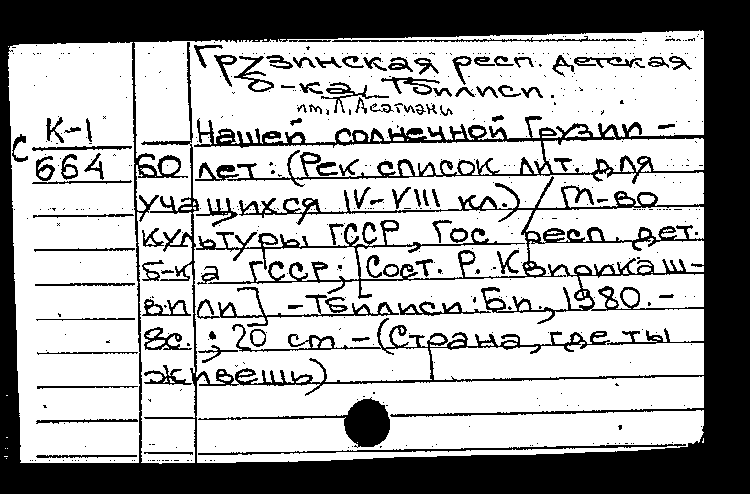 Грузинская респ. детская
б-ка, Тбилиси.
им. Л. Асатиани
К-1 Нашей солнечной Грузии -
С 664 60 лет: (Рек. список лит. для
учащихся IV-VIII кл.) / М-во
культуры ГССР, Гос. респ. дет.
б-ка ГССР; [Сост. Р. Квирикаш-
вили]. - Тбилиси: Б.и., 1980. -
8с.; 20 см. - (Страна, где ты
живешь).